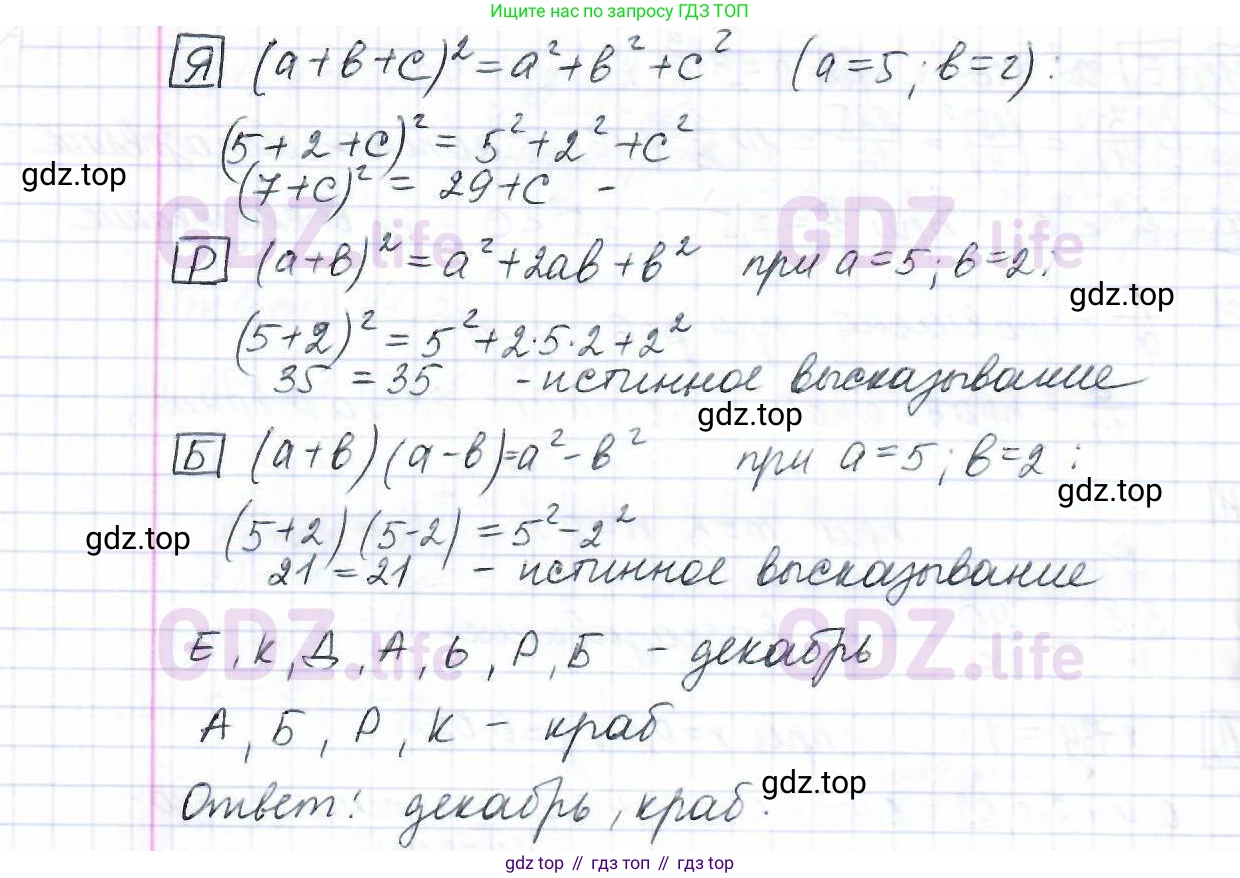 Ищите нас по запросу ГДЗ ТОП
Я (a+b+c)²=a²+b²+c² (a=5; b=2):
(5+2+c)² = 5²+2²+c²
gdz.top
(7+c)² = 29+c -
GDZ.life GDZ.life
Р (a+b)²=a²+2ab+b² при a=5; b=2:
gdz.top
(5+2)² = 5²+2·5·2+2²
35 = 35 - истинное высказывание
gdz.top
Б (a+b)(a-b)=a²-b² при a=5; b=2:
gdz.top
(5+2)(5-2) = 5²-2²
gdz.top
21 = 21 - истинное высказывание
GDZ.life GDZ.life
Е, К, Д, А, Ь, Р, Б - декабрь
А, Б, Р, К - краб
gdz.top
Ответ: декабрь, краб.
gdz top // гдз топ // гдз top